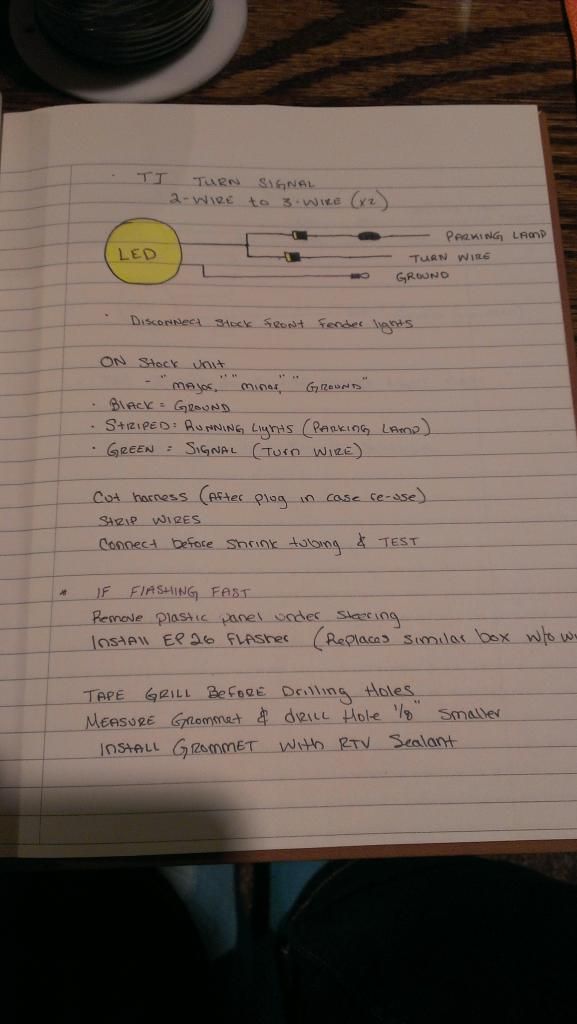 · TJ TURN SIGNAL
2-WIRE to 3-WIRE (x2)
LED
PARKING LAMP
TURN WIRE
GROUND
· Disconnect stock front fender lights
ON Stock unit
- "major," "minor," "GROUND"
· BLACK = GROUND
· STRIPED = RUNNING Lights (PARKING LAMP)
· GREEN = SIGNAL (Turn WIRE)
Cut harness (After plug in case re-use)
STRIP WIRES
Connect before shrink tubing & TEST
* IF FLASHING FAST
Remove plastic panel under steering
Install EP26 FLASHER (Replaces similar box w/o
TAPE GRILL BEFORE Drilling Holes
MEASURE Grommet & drill Hole 1/8" smaller
INSTALL GROMMET with RTV Sealant